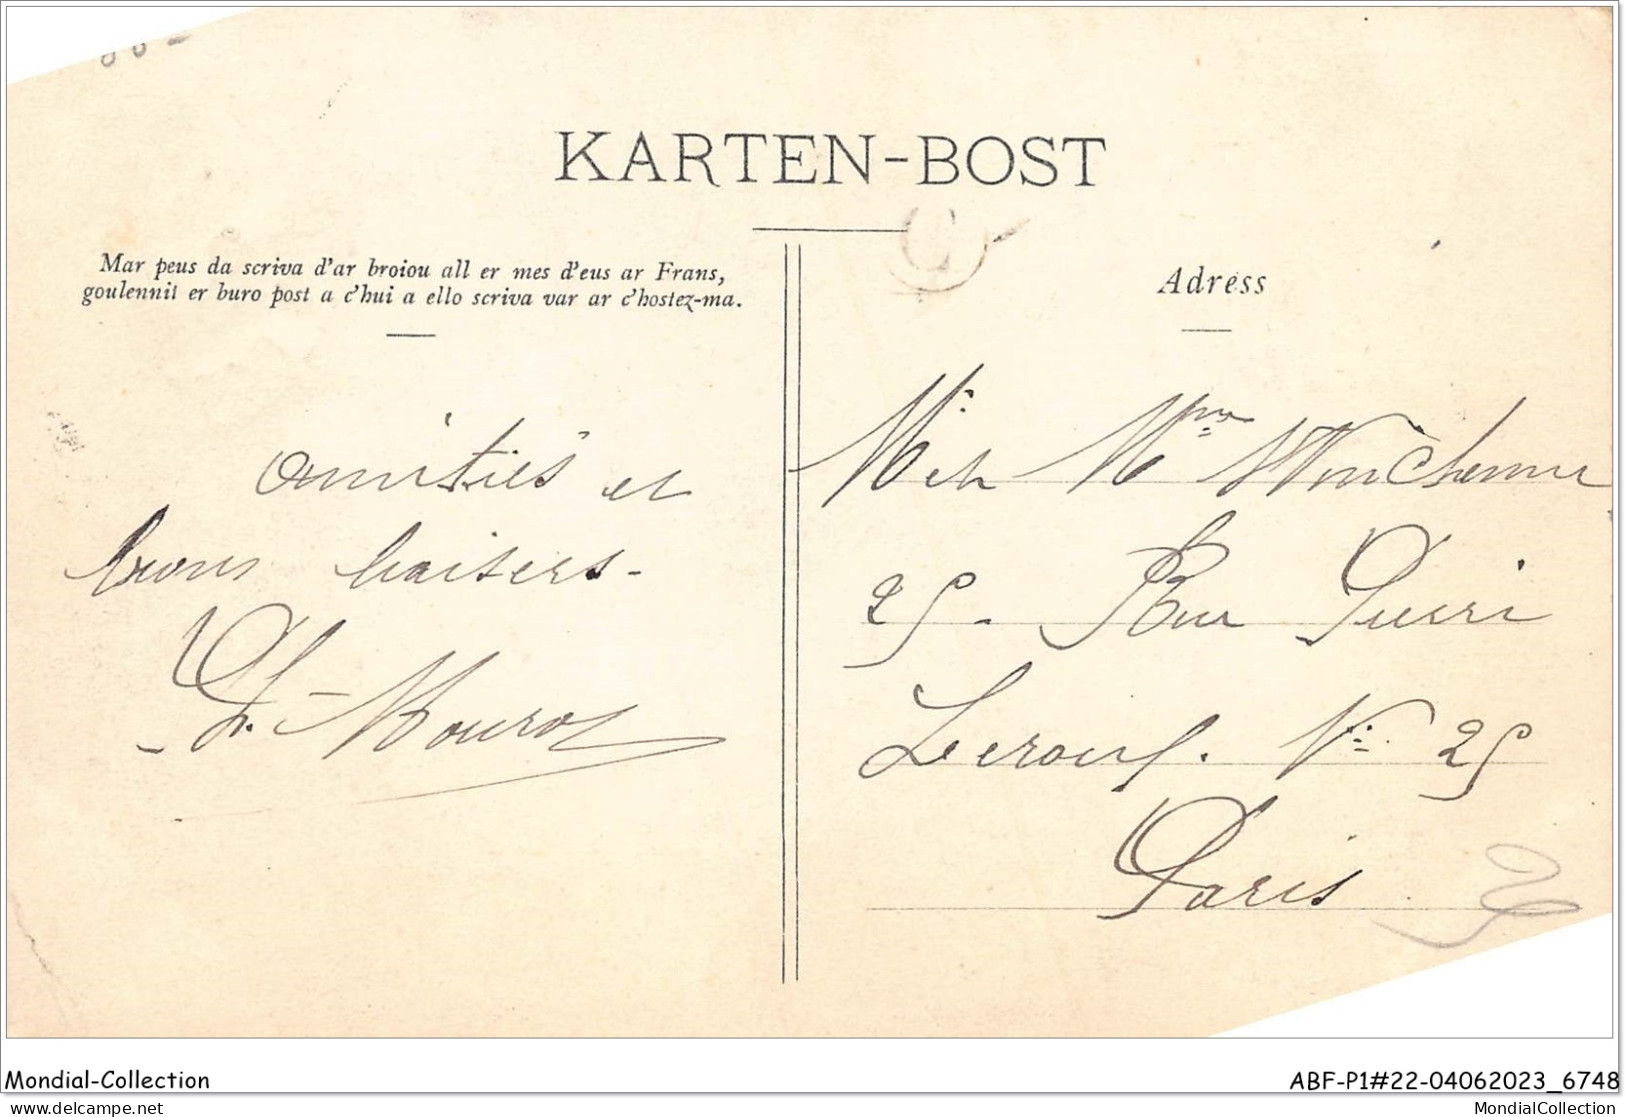 KARTEN-BOST
Mar peus da scriva d'ar broiou all er mes d'eus ar Frans,
goulennit er buro post a c'hui a ello scriva var ar c'hostez-ma.
Adrèss
amitiés et
bons baisers.
Mouroz
Mr et Mme
25. Rue Pierre
Leroux. No 25
Paris
Mondial-Collection
ABF-P1#22-04062023_6748
delcampe.net
MondialCollection